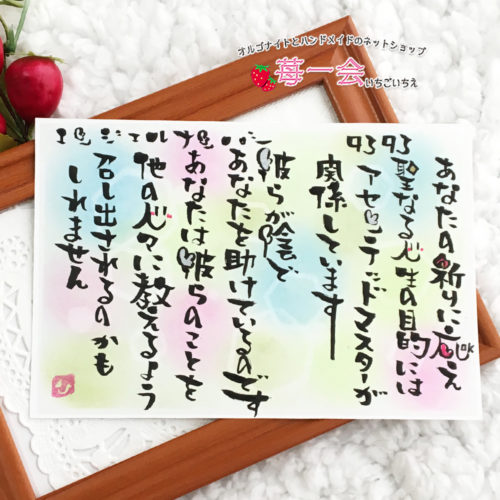 オルゴナイトとハンドメイドのネットショップ
苺一会
いちごいちえ
エンジェルナンバー 9393
あなたの祈りに応え
聖なる人生の目的には
アセンデッドマスターが
関係しています
彼らが陰で
あなたを助けているのです
あなたは彼らのことを
他の人々に教えるよう
召し出されるのかも
しれません